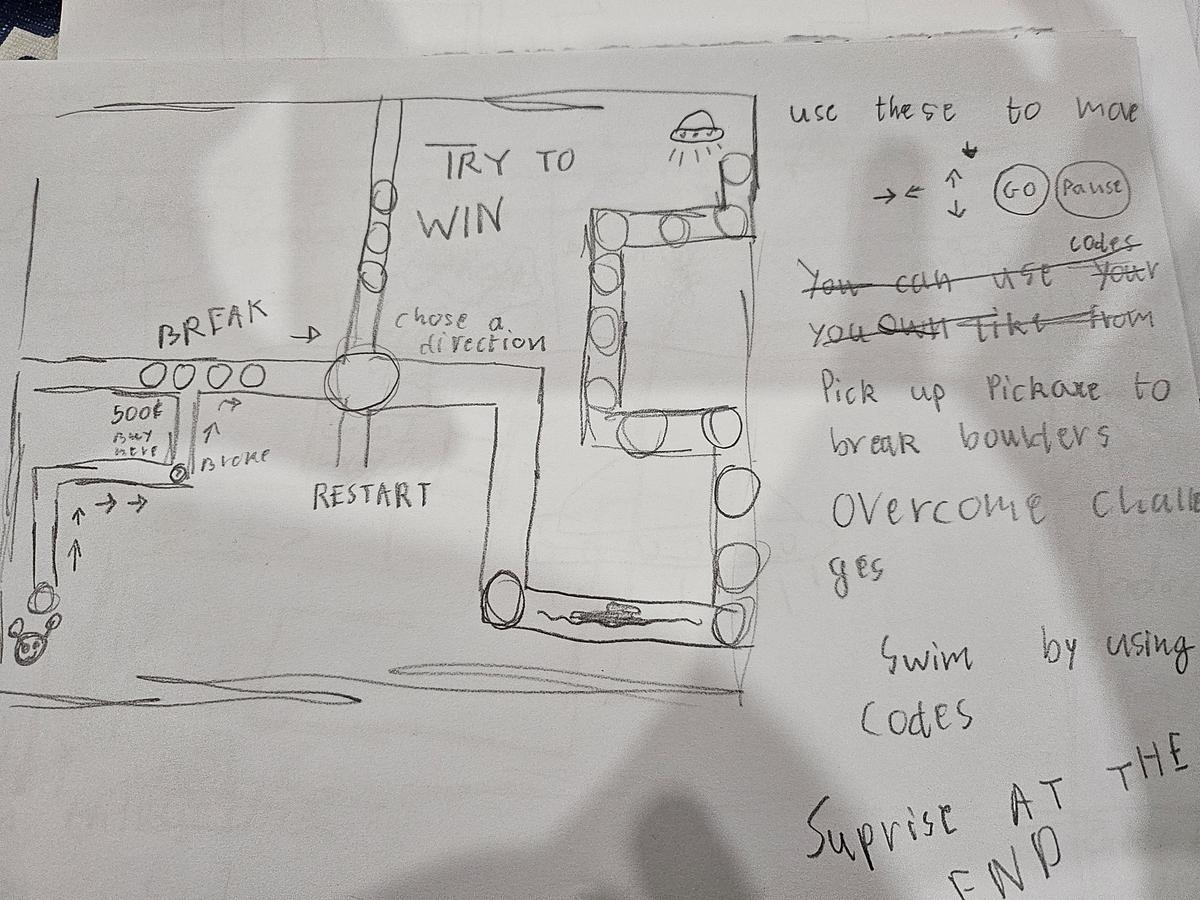 TRY TO
WIN
BREAK
chose a
direction
500¢
Buy
here
Broke
RESTART
use these to move
GO
Pause
codes
You can use your
you own like from
Pick up Pickaxe to
break boulders
Overcome Challe
ges
Swim by using
Codes
Suprise AT THE
END